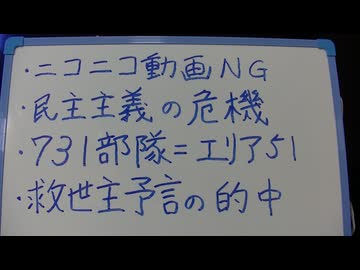 ・ニコニコ動画NG
・民主主義の危機
・731部隊=エリア51
・救世主予言の的中